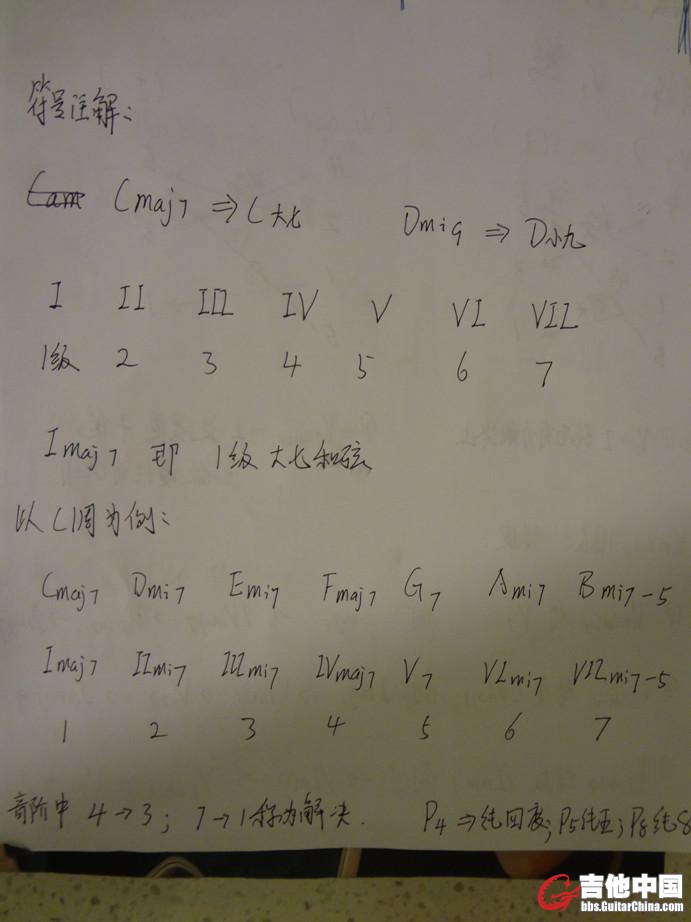 符号注解:
Cmaj7 ⇒ C大七 Dmi9 ⇒ D小九
I II III IV V VI VII
1级 2 3 4 5 6 7
Imaj7 即 1级 大七和弦
以C调为例:
Cmaj7 Dmi7 Emi7 Fmaj7 G7 Ami7 Bmi7-5
Imaj7 IImi7 IIImi7 IVmaj7 V7 VImi7 VIImi7-5
1 2 3 4 5 6 7
音阶中 4→3; 7→1称为解决. P4 ⇒ 纯四度; P5纯五; P8纯8
吉他中国
bbs.GuitarChina.com